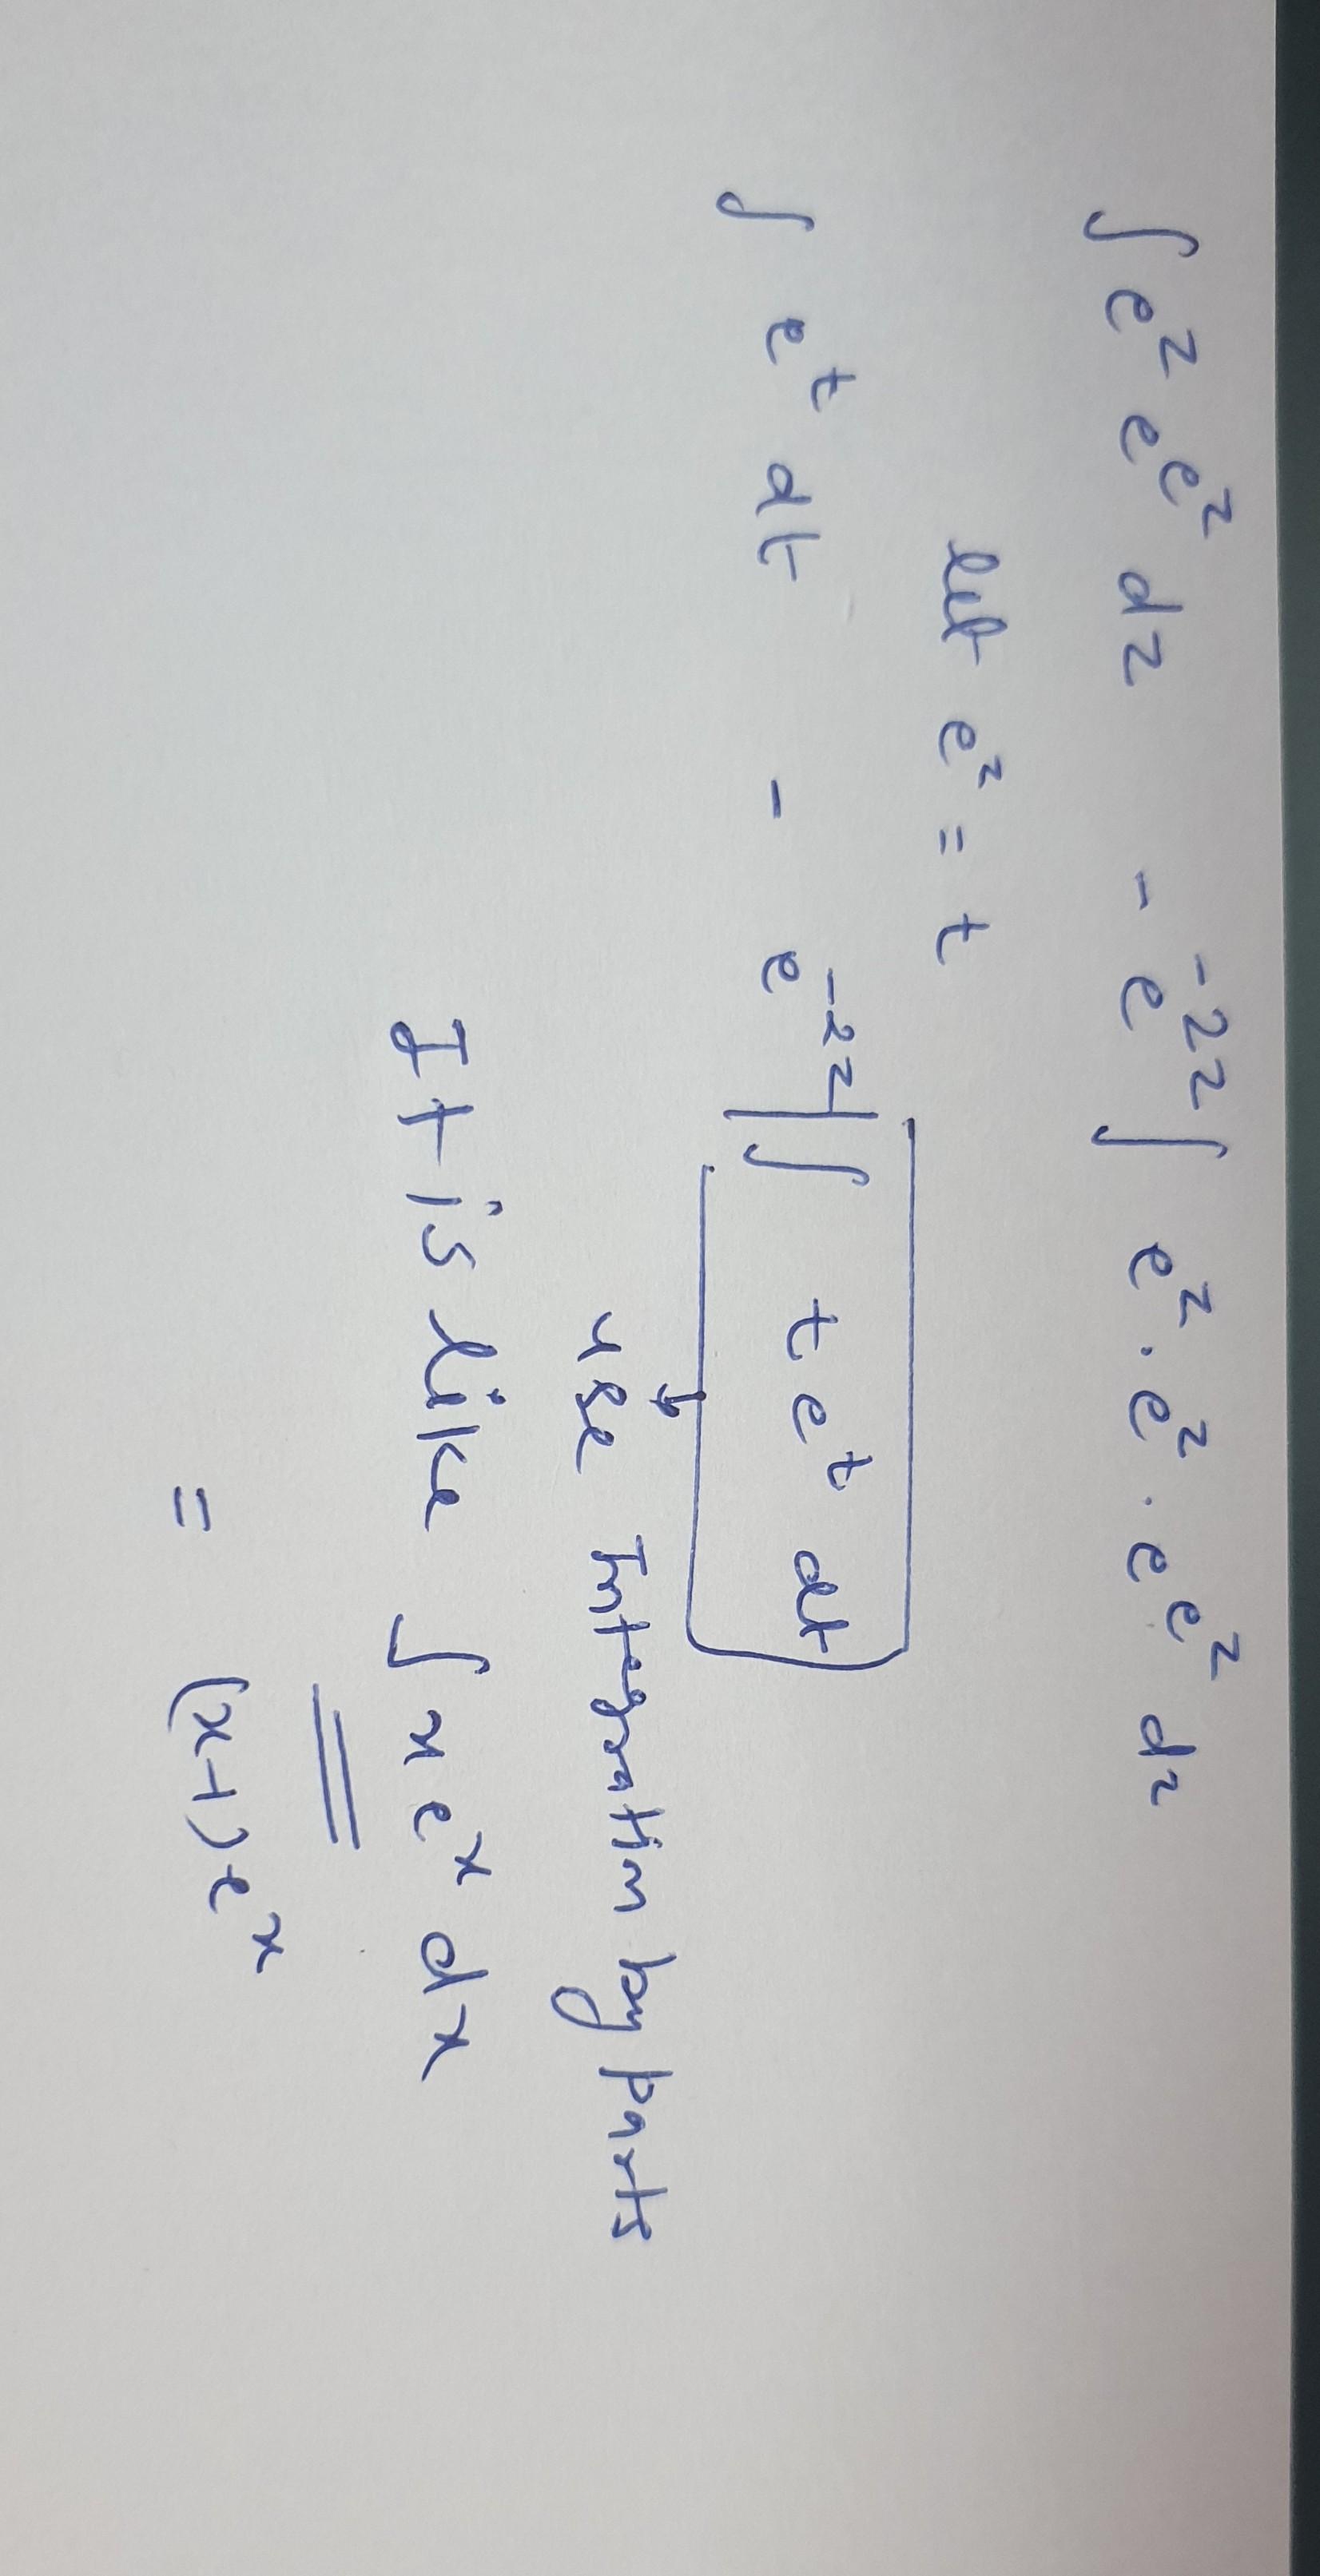 ∫ e^z e^{e^z} dz - e^{-2z} ∫ e^z . e^z . e^{e^z} dz
let e^z = t
∫ e^t dt - e^{-2z} ∫ t e^t dt
↓
use Integration by parts
It is like ∫ x e^x dx
= (x-1) e^x